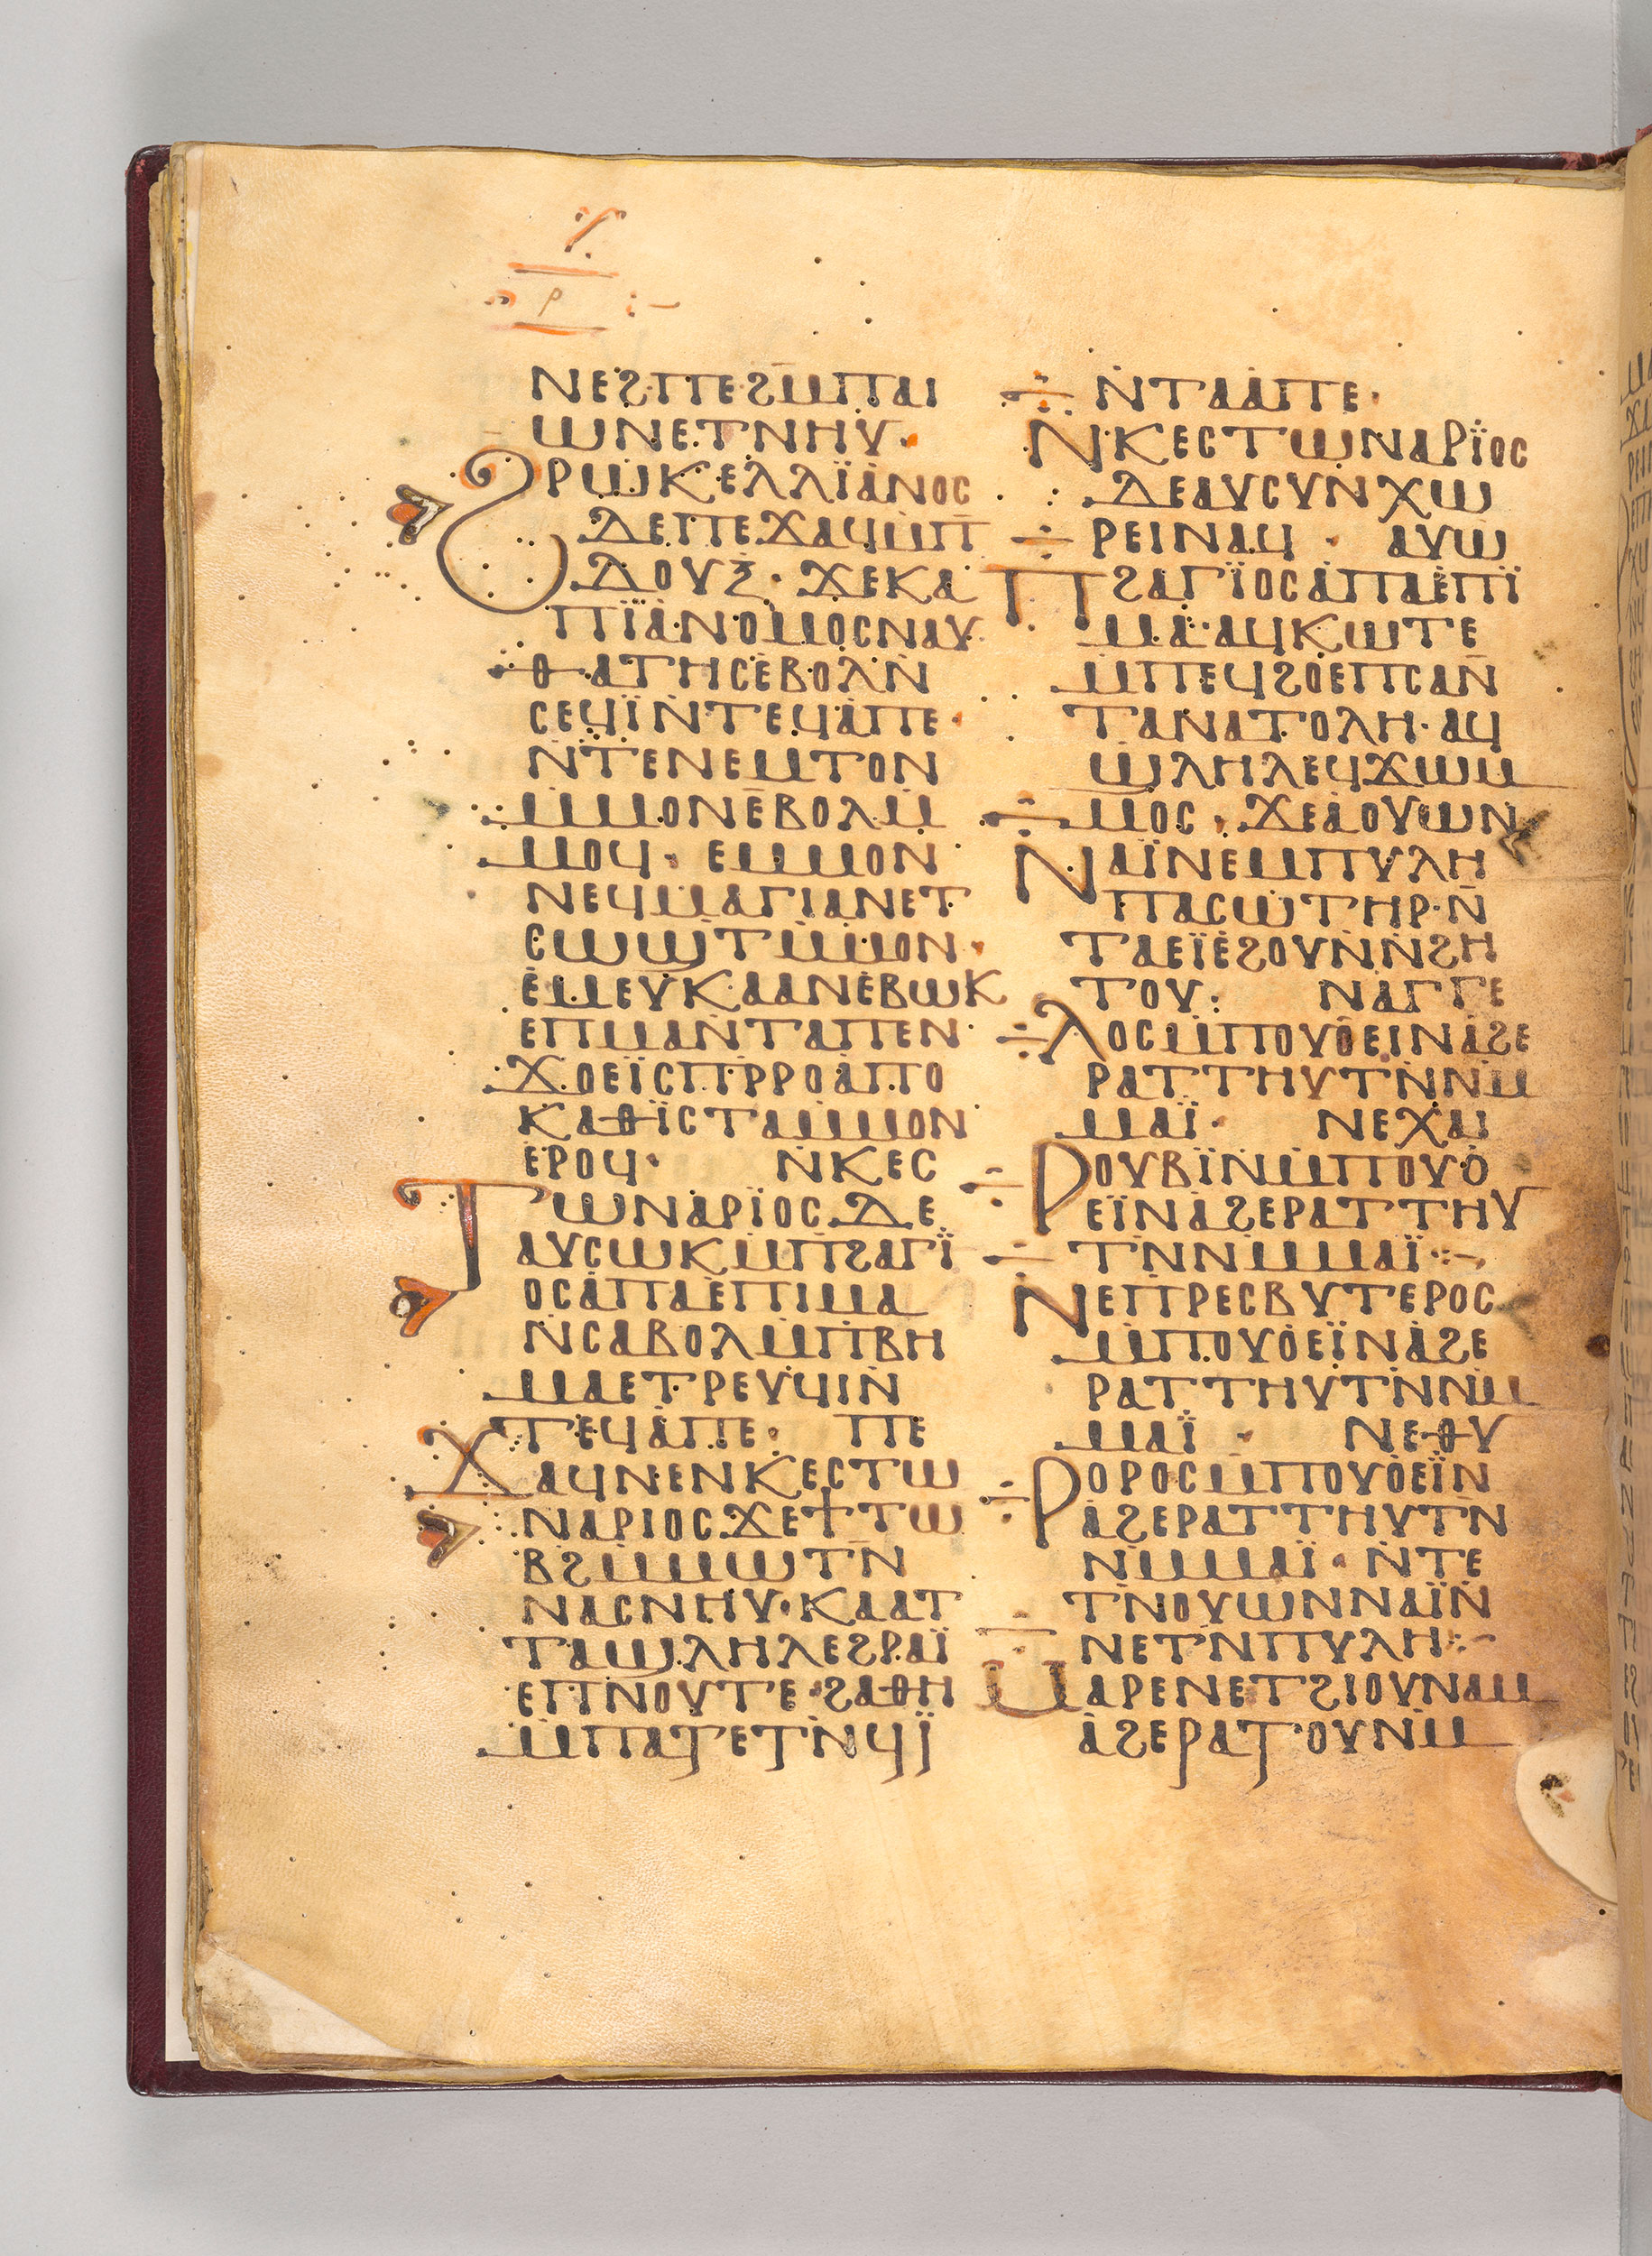 ⲣ
ⲛⲉϩⲡⲉϩⲙⲡⲁⲓ
ⲱⲛⲉⲧⲛⲏⲩ·
ϩⲣⲱⲕⲉⲗⲗⲓ̈ⲁⲛⲟⲥ
ⲇⲉⲡⲉϫⲁϥⲙⲡ
ⲇⲟⲩⲝ· ϫⲉⲕⲁ
ⲡⲓ̈ⲁⲛⲟⲙⲟⲥⲛⲁⲩ
ⲑⲁⲧⲏⲥⲉⲃⲟⲗⲛ̇
ⲥⲉϥⲓ̈ⲛ̇ⲧⲉϥⲁⲡⲉ·
ⲛ̇ⲧ̈ⲉⲛⲉⲙⲧⲟⲛ
ⲙ̇ⲙⲟⲛⲉ̇ⲃⲟⲗⲙ̇
ⲙⲟϥ· ⲉⲙⲙⲟⲛ
ⲛⲉϥⲙⲁⲅⲓⲁⲛⲉⲧ
ⲥⲱϣⲧⲙ̇ⲙⲟⲛ·
ⲉ̇ⲙⲉⲩⲕⲁⲁⲛⲉ̇ⲃⲱⲕ
ⲉⲡⲙⲁⲛ̇ⲧⲁⲡⲉⲛ
ϫⲟⲉⲓ̈ⲥⲡ̇ⲣⲣⲟⲁ̇ⲡⲟ
ⲕⲁⲑⲓ̈ⲥⲧⲁⲙ̇ⲙⲟⲛ
ⲉ̇ⲣⲟϥ· ⲛ̇ⲕⲉⲥ
ⲧⲱⲛⲁⲣⲓ̈ⲟⲥⲇⲉ
ⲁⲩⲥⲱⲕⲙ̇ⲡ̇ϩⲁⲅⲓ̈
ⲟⲥⲁ̇ⲡⲁⲉ̇ⲡⲓⲙⲁ
ⲛ̇ⲥⲁⲃⲟⲗⲙ̇ⲡ̇ⲃⲏ
ⲙⲁⲉⲧⲣⲉⲩϥⲓⲛ̇
ⲧⲉϥⲁ̇ⲡⲉ· ⲡⲉ
ϫⲁϥⲛⲉⲛⲕⲉⲥⲧⲱ
ⲛⲁⲣⲓⲟⲥϫⲉϯⲧⲱ
ⲃϩⲙ̇ⲙⲱⲧⲛ̇
ⲛⲁⲥⲛⲏⲩ·ⲕⲁⲁⲧ
ⲧⲁϣⲗⲏⲗⲉϩⲣⲁⲓ̈
ⲉⲡⲛⲟⲩⲧⲉ·ϩⲁⲑⲏ
ⲙ̇ⲡⲁⲧⲉⲧⲛ̇ϥⲓ̈
ⲛ̇ⲧⲁⲁ̇ⲡⲉ·
ⲛ̇ⲕⲉⲥⲧⲱⲛⲁⲣⲓ̈ⲟⲥ
ⲇⲉⲁⲩⲥⲩⲛⲭⲱ
ⲣⲉⲓⲛⲁϥ· ⲁⲩⲱ
ⲡϩⲁⲅⲓ̈ⲟⲥⲁⲡⲁⲉ̇ⲡⲓ̈
ⲙⲁ·ⲁϥⲕⲱⲧⲉ
ⲙⲡⲉϥϩⲟⲉⲡⲥⲁⲛ̅
ⲧⲁⲛⲁⲧⲟⲗⲏ·ⲁϥ
ϣⲗⲏⲗⲉϥϫⲱⲙ
ⲙⲟⲥ· ϫⲉⲁ̇ⲟⲩⲱⲛ
ⲛⲁⲓ̈ⲛⲉⲙⲡⲩⲗⲏ
ⲡⲁⲥⲱⲧⲏⲣ·ⲛ̅
ⲧⲁⲉⲓ̈ⲉ̇ϩⲟⲩⲛⲛ̇ϩⲏ
ⲧⲟⲩ: ⲛⲁ̇ⲅⲅⲉ
ⲗⲟⲥⲙ̇ⲡⲟⲩⲟ̇ⲉⲓⲛⲁ̇ϩⲉ
ⲣⲁⲧⲧⲏⲩⲧⲛ̇ⲛⲙ̇
ⲙⲁⲓ̈· ⲛⲉⲭⲁⲓ
ⲣⲟⲩⲃⲓ̈ⲛⲙ̇ⲡⲟⲩⲟ̇
ⲉⲓ̈ⲛⲁ̇ϩⲉⲣⲁⲧⲧⲏⲩ
ⲧⲛ̇ⲛⲙ̇ⲙⲁⲓ̈·:-
ⲛⲉⲡ̇ⲣⲉⲥⲃⲩⲧⲉⲣⲟⲥ
ⲙ̇ⲡⲟⲩⲟ̇ⲉⲓ̈ⲛⲁ̇ϩⲉ
ⲣⲁⲧⲧⲏⲩⲧⲛ̇ⲛⲙ̇
ⲙⲁⲓ̈· ⲛⲉⲑⲩ
ⲣⲟⲣⲟⲥⲙ̇ⲡⲟⲩⲟ̇ⲉⲓ̈ⲛ
ⲁ̇ϩⲉⲣⲁⲧⲧⲏⲩⲧⲛ̇
ⲛⲙ̇ⲙⲁⲓ̈· ⲛ̇ⲧⲉ
ⲧⲛ̇ⲟⲩⲱⲛⲛⲁⲓ̈ⲛ̇
ⲛⲉⲧⲛ̇ⲡⲩⲗⲏ:-
ⲙⲁⲣⲉⲛⲉⲧϩⲓⲟⲩⲛⲁⲙ
ⲁ̇ϩⲉⲣⲁⲧ·ⲟⲩⲛⲙ̇